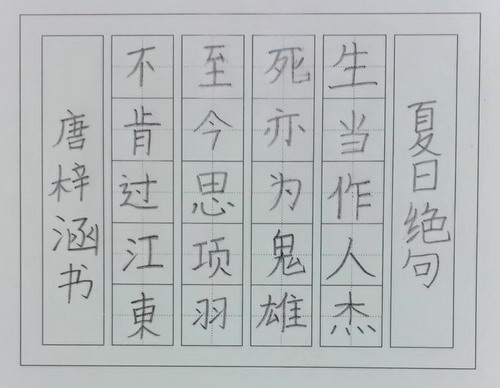 夏日绝句
生当作人杰
死亦为鬼雄
至今思项羽
不肯过江東
唐梓涵书